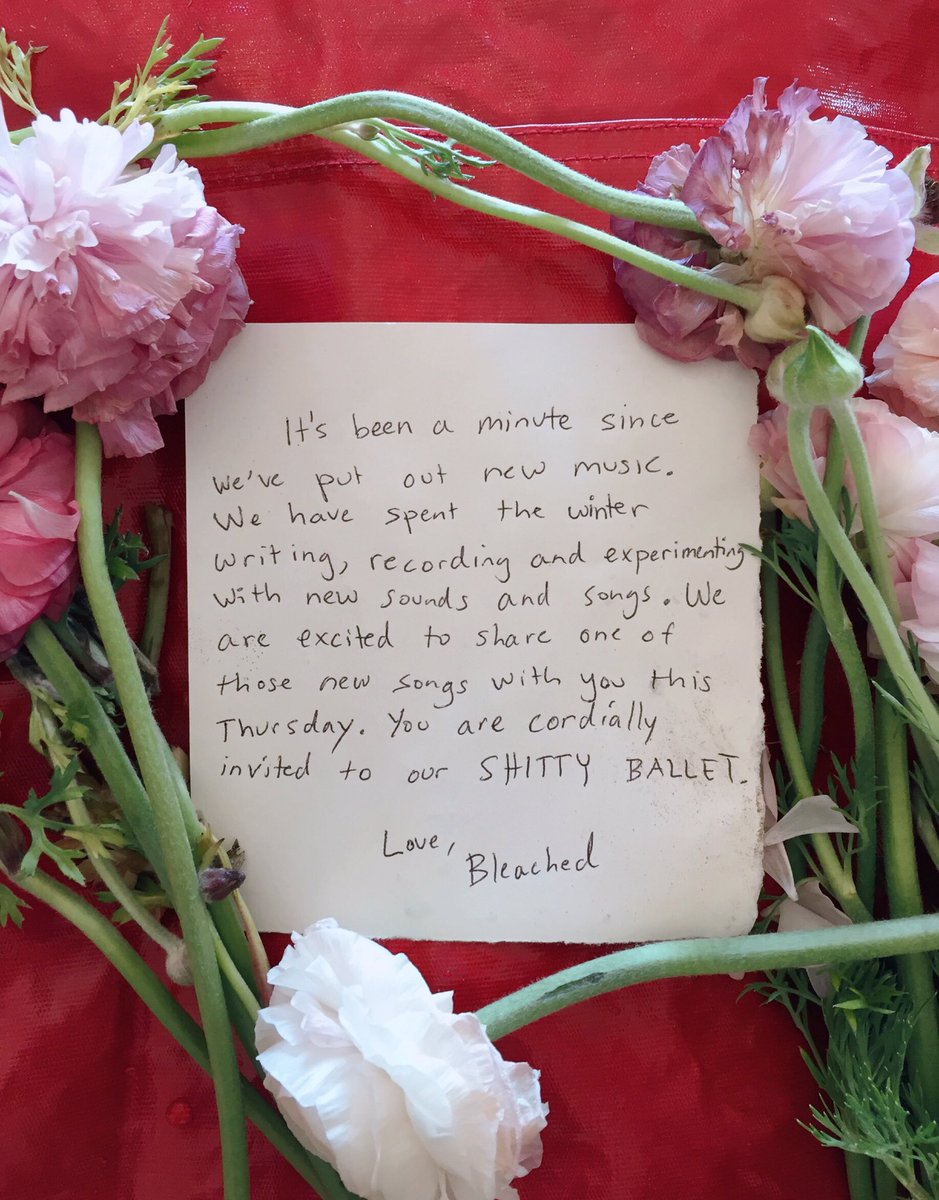 It's been a minute since
we've put out new music.
We have spent the winter
writing, recording and experimenting
with new sounds and songs. We
are excited to share one of
those new songs with you this
Thursday. You are cordially
invited to our SHITTY BALLET.
Love,
Bleached